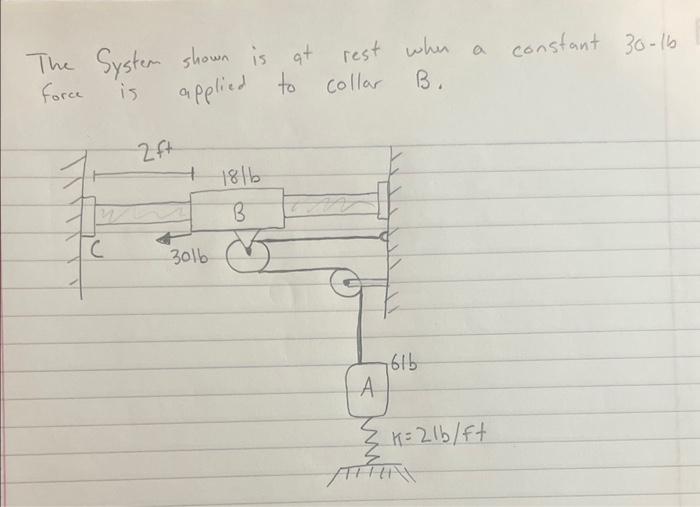 The System shown is at rest when a constant 30-lb
force is applied to collar B.
2ft
18lb
B
C
30lb
6lb
A
K=2lb/ft